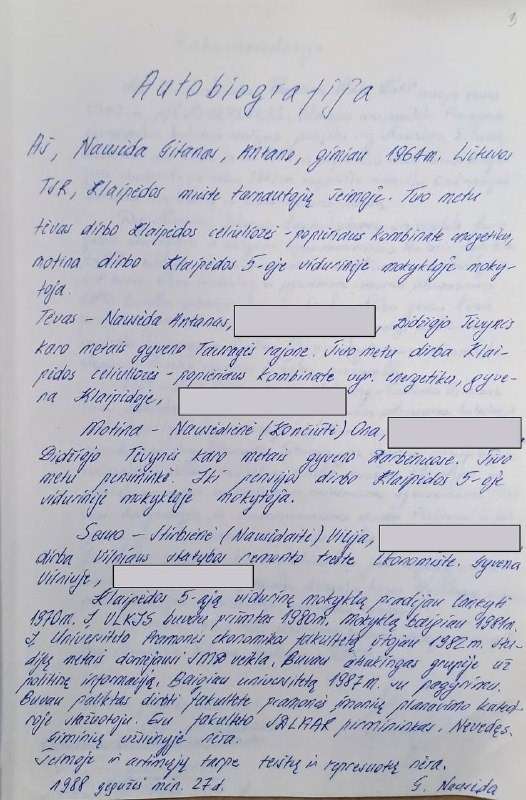 3
Autobiografija
Aš, Nausėda Gitanas, Antano, gimiau 1964m. Lietuvos
TSR, Klaipėdos mieste tarnautojų šeimoje. Tuo metu
tėvas dirbo Klaipėdos celiuliozės-popieriaus kombinate energetiku,
motina dirbo Klaipėdos 5-oje vidurinėje mokykloje moky-
toja.
Tėvas – Nausėda Antanas, , Didžiojo Tėvynės
karo metais gyveno Tauragės rajone. Šiuo metu dirba Klai-
pėdos celiuliozės-popieriaus kombinate vyr. energetiku, gyve-
na Klaipėdoje,
Motina – Nausėdienė (Končiūtė) Ona, ,
Didžiojo Tėvynės karo metais gyveno Darbėnuose. Šiuo
metu pensininkė. Iki pensijos dirbo Klaipėdos 5-oje
vidurinėje mokykloje mokytoja.
Sesuo – Stirbienė (Nausėdaitė) Vilija, ,
dirba Vilniaus statybos remonto treste ekonomiste. Gyvena
Vilniuje,
Klaipėdos 5-ąją vidurinę mokyklą pradėjau lankyti
1970m. Į VLKJS buvau priimtas 1980m. Mokyklą baigiau 1981m.
Į Universiteto Pramonės ekonomikos fakultetą įstojau 1982m. Stu-
dijų metais domėjausi SMD veikla. Buvau atsakingas grupėje už
politinę informaciją. Baigiau universitetą 1987m. su pagyrimu.
Buvau paliktas dirbti fakultete pramonės įmonių planavimo kated-
roje stažuotoju. Esu fakulteto SDLAAR pirmininkas. Nevedęs.
Giminių užsienyje nėra.
Šeimoje ir artimųjų tarpe teistų ir represuotų nėra.
1988 gegužės mėn. 27d. G. Nausėda